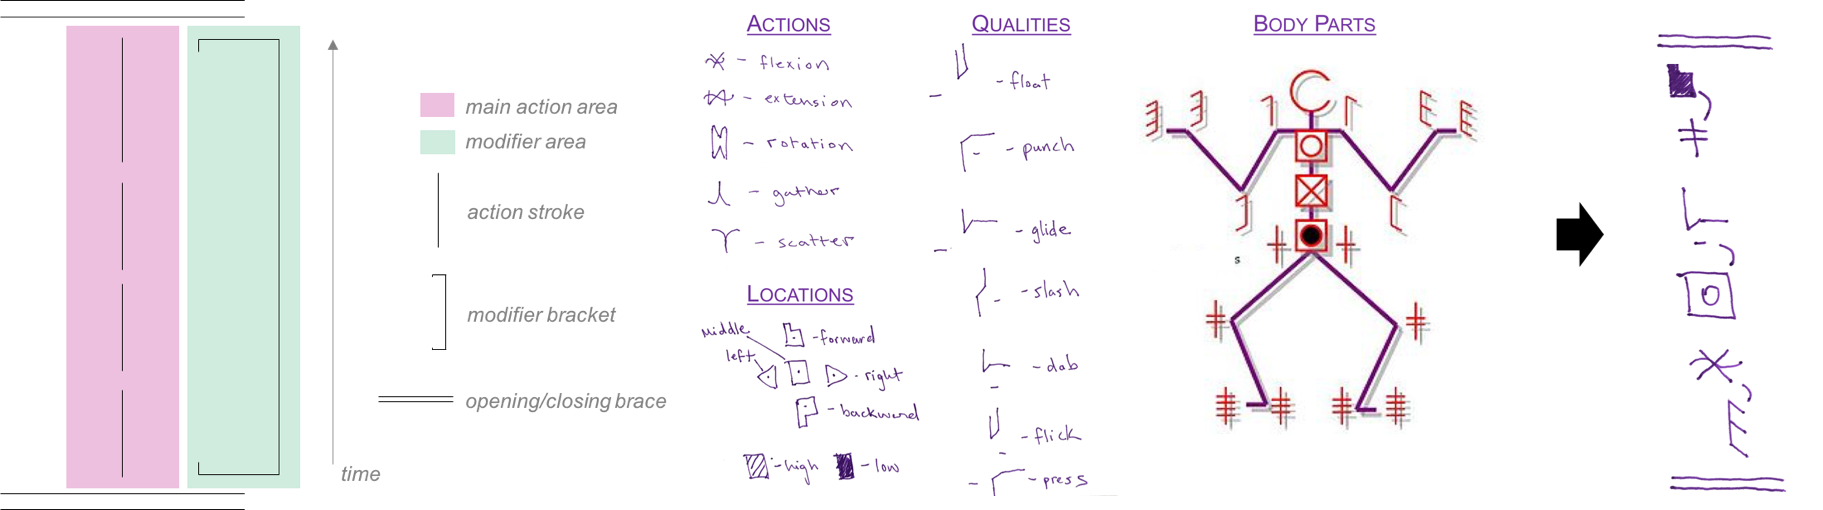 main action area
modifier area
action stroke
modifier bracket
opening/closing brace
time
ACTIONS
- flexion
- extension
- rotation
- gather
- scatter
LOCATIONS
middle
left
- forward
- right
- backward
- high
- low
QUALITIES
- float
- punch
- glide
- slash
- dab
- flick
- press
BODY PARTS
s